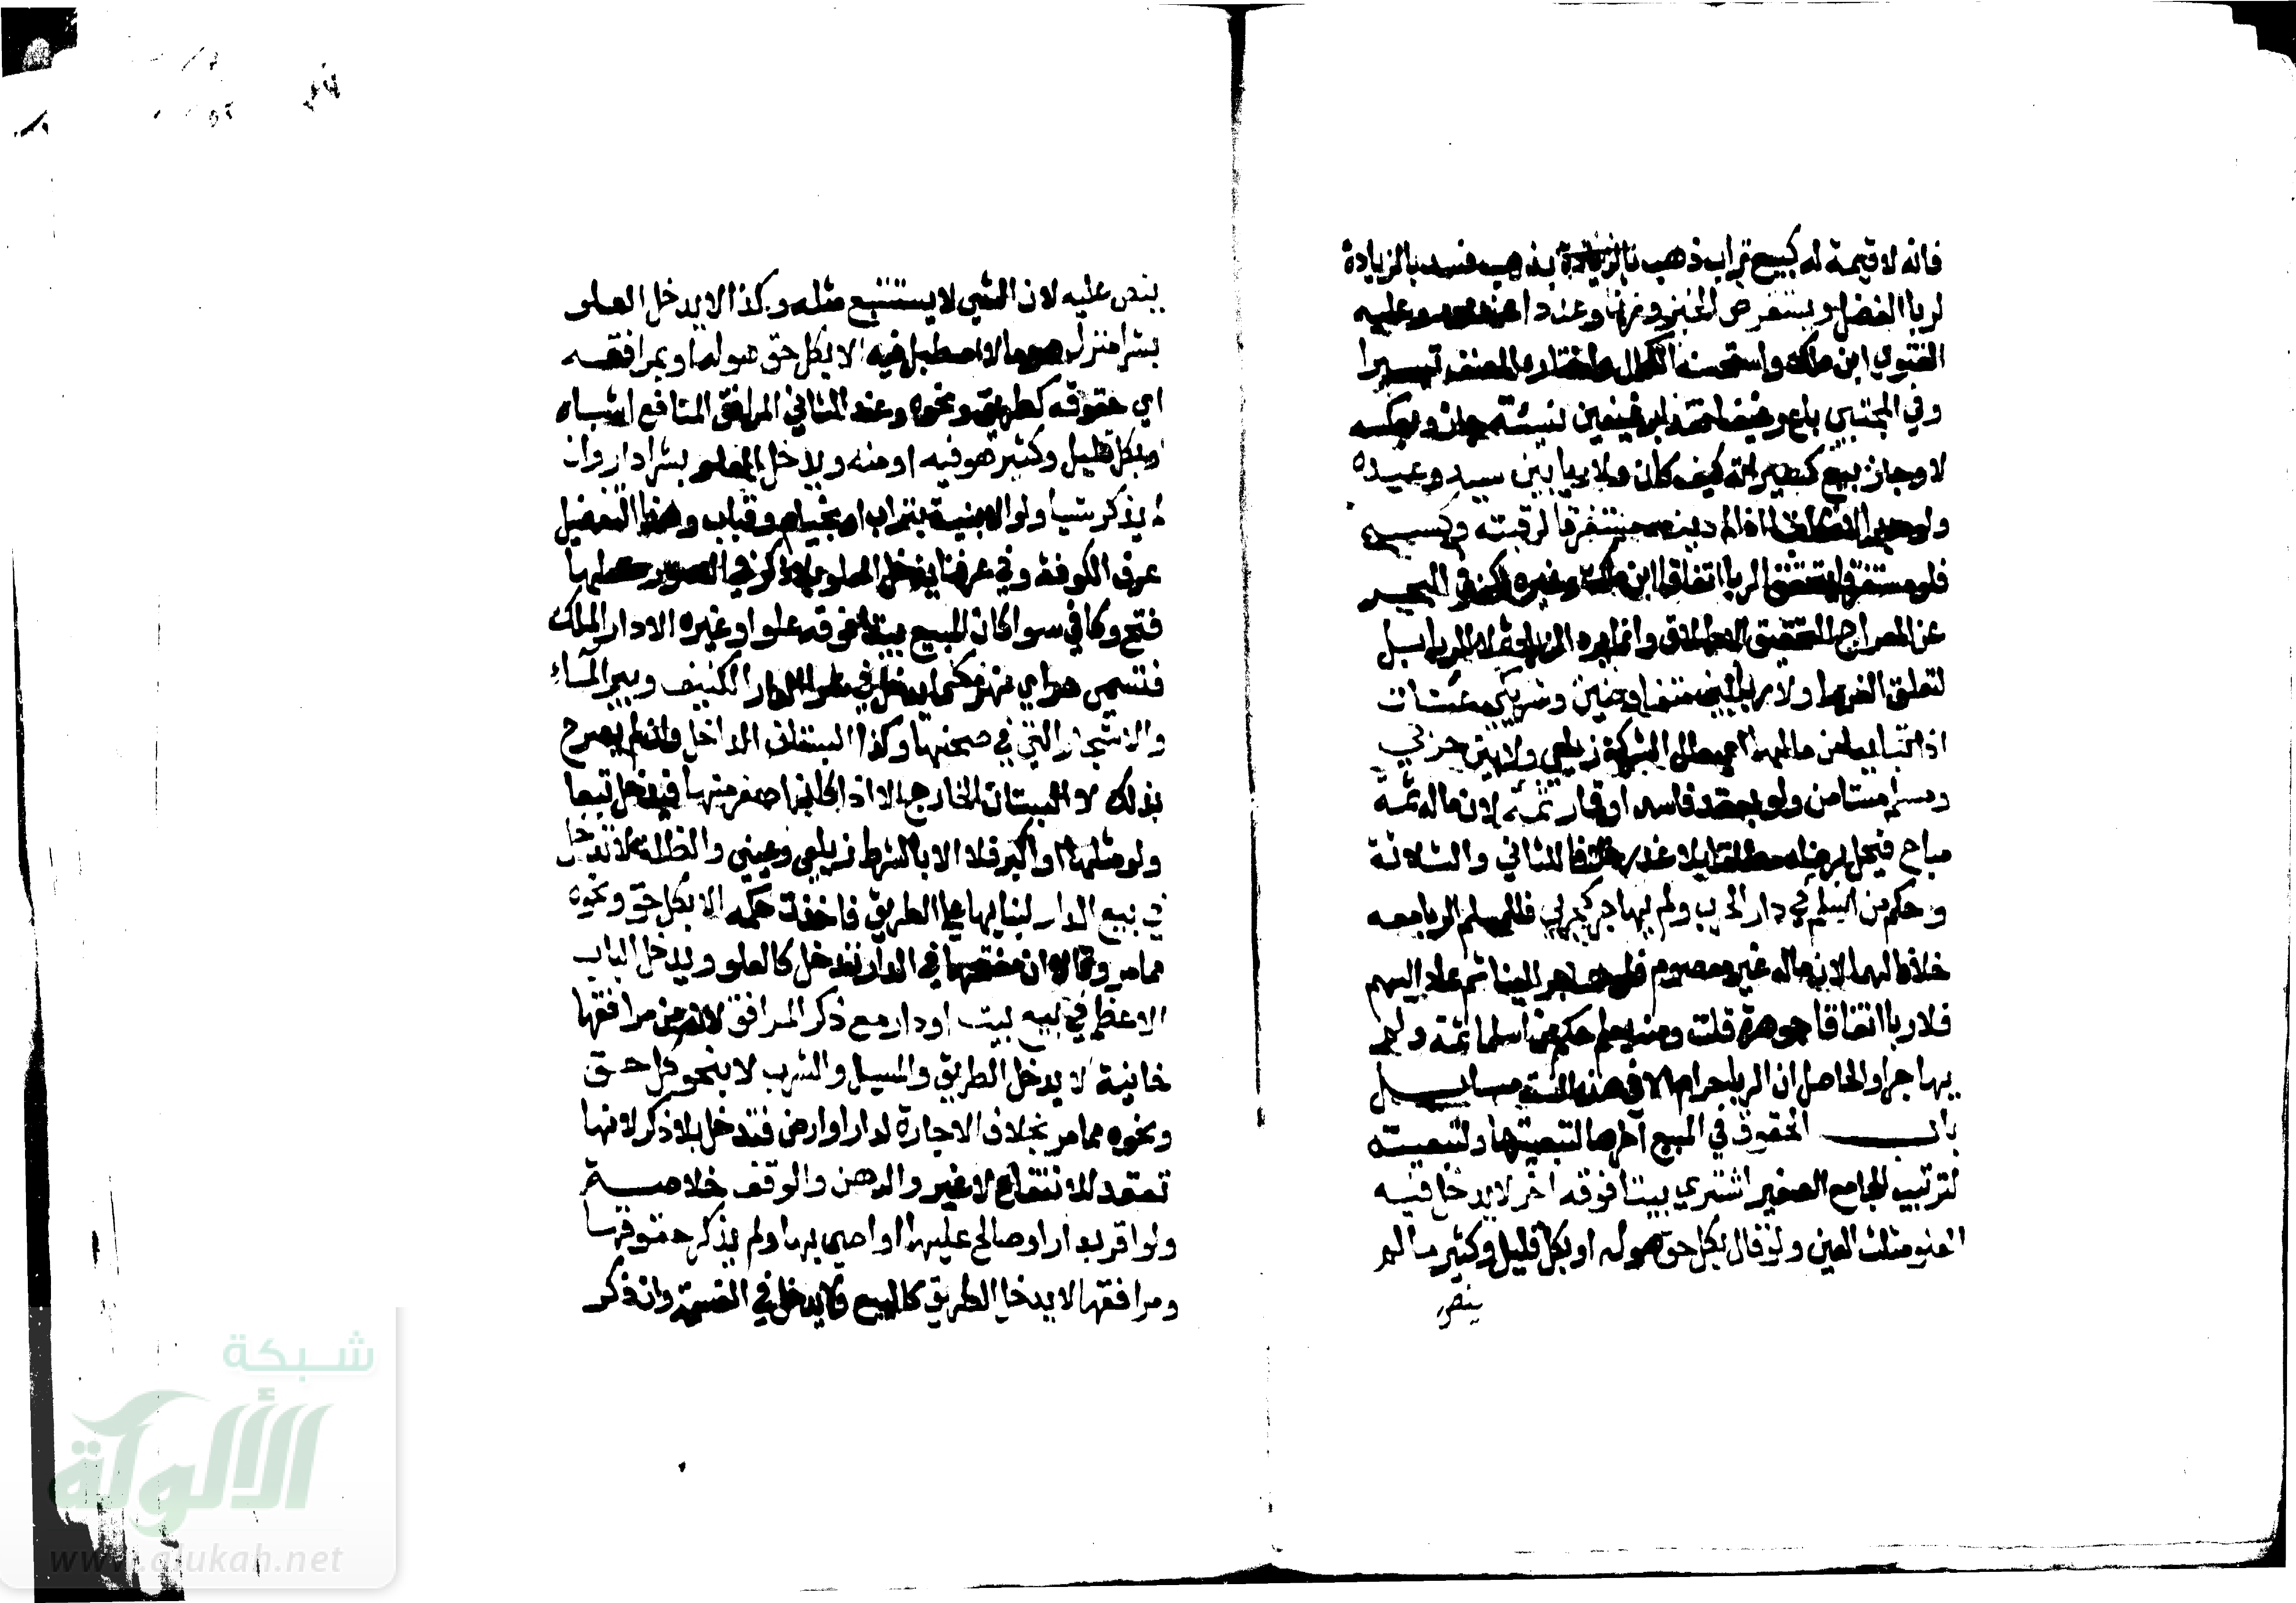 فانه لا قيمة له كبيع تراب ذهب بالزيادة بذهب فسد بالزيادة
لربا الفضل ويستقرض الخبز وزنا وعددا عند محمد وعليه
الفتوي ابن ملك واستحسنه الكمال واختاره المصنف تيسيرا
وفي المجتبي باع رغيفا نقدا برغيفين نسيئة جاز وبعكسه
لا وجاز بيع كسيراته كيف كان ولا ربا بين سيد وعبده
ولو مدبرا لا مكاتبا اذا لم يكن دينه مستغرقا لرقبته وكسبه
فلو مستغرقا يتحقق الربا اتفاقا ابن ملك وغيره لكن في البحر
عن المعراج التحقيق الاطلاق وانما يرد الزيادة لا للربا بل
لتعلق الغرما ولا ربا بين متفاوضين وشريكي عنان
اذا تبايعا من مالهما اي مال الشركة زيلعي ولا بين حربي
ومسلم مستامن ولو بعقد فاسد او قمار ثمة لان ماله ثمة
مباح فيحل برضاه مطلقا بلا غدر خلافا للثاني والثلاثة
وحكم من اسلم في دار الحرب ولم يهاجر كحربي فللمسلم الربا معه
خلافا لهما لان ماله غير معصوم فلو هاجر الينا ثم عاد اليهم
فلا ربا اتفاقا جوهرة قلت ومنه يعلم حكم من اسلما ثمة ولم
يهاجرا والحاصل ان الربا حرام الا في هذه الست مسايل
باب الحقوق في البيع اخرها لتبعيتها ولتبعيته
لترتيب الجامع الصغير اشتري بيتا فوقه اخر لا يدخل فيه
العلو مثلث العين ولو قال بكل حق هو له او بكل قليل وكثير ما لم
ينص
ينص عليه لان الشي لا يستتبع مثله وكذا لا يدخل العلو
بشرا منزل هو ما لا اصطبل فيه الا بكل حق هو له او بمرافقه
اي حقوقه كطريق ونحوه وعند الثاني المرافق المنافع اشباه
او بكل قليل وكثير هو فيه او منه ويدخل العلو بشرا دار وان
لم يذكر شيا ولو الابنية بتراب او بخيام او قباب وهذا التفصيل
عرف الكوفة وفي عرفنا يدخل العلو بلا ذكر في الصور كلها
فتح وكافي سوا كان المبيع بيتا فوقه علو او غيره الا دار الملك
فتسمي سراي نهر كما يدخل في شرا الدار الكنيف وبير الماء
والاشجار التي في صحنها وكذا البستان الداخل وان لم يصرح
بذلك لا البستان الخارج الا اذا كان اصغر منها فيدخل تبعا
ولو مثلها او اكبر فلا الا بالشرط زيلعي وعيني والظلة لا تدخل
في بيع الدار لبنايها علي الطريق فاخذت حكمه الا بكل حق ونحوه
مما مر وقالا ان مفتحها في الدار تدخل كالعلو ويدخل الباب
الاعظم في بيع بيت او دار مع ذكر المرافق لانه من مرافقها
خانية لا يدخل الطريق والمسيل والشرب لا بنحو كل حق
ونحوه مما مر بخلاف الاجارة لدار او ارض فتدخل بلا ذكر لانها
تعقد للانتفاع لا غير والرهن والوقف خلاصة
ولو اقر بدار او صالح عليها او اوصي بها ولم يذكر حقوقها
ومرافقها لا يدخل الطريق كالبيع ولا يدخل في القسمة وان ذكر
شبكة
الألوكة
www.alukah.net